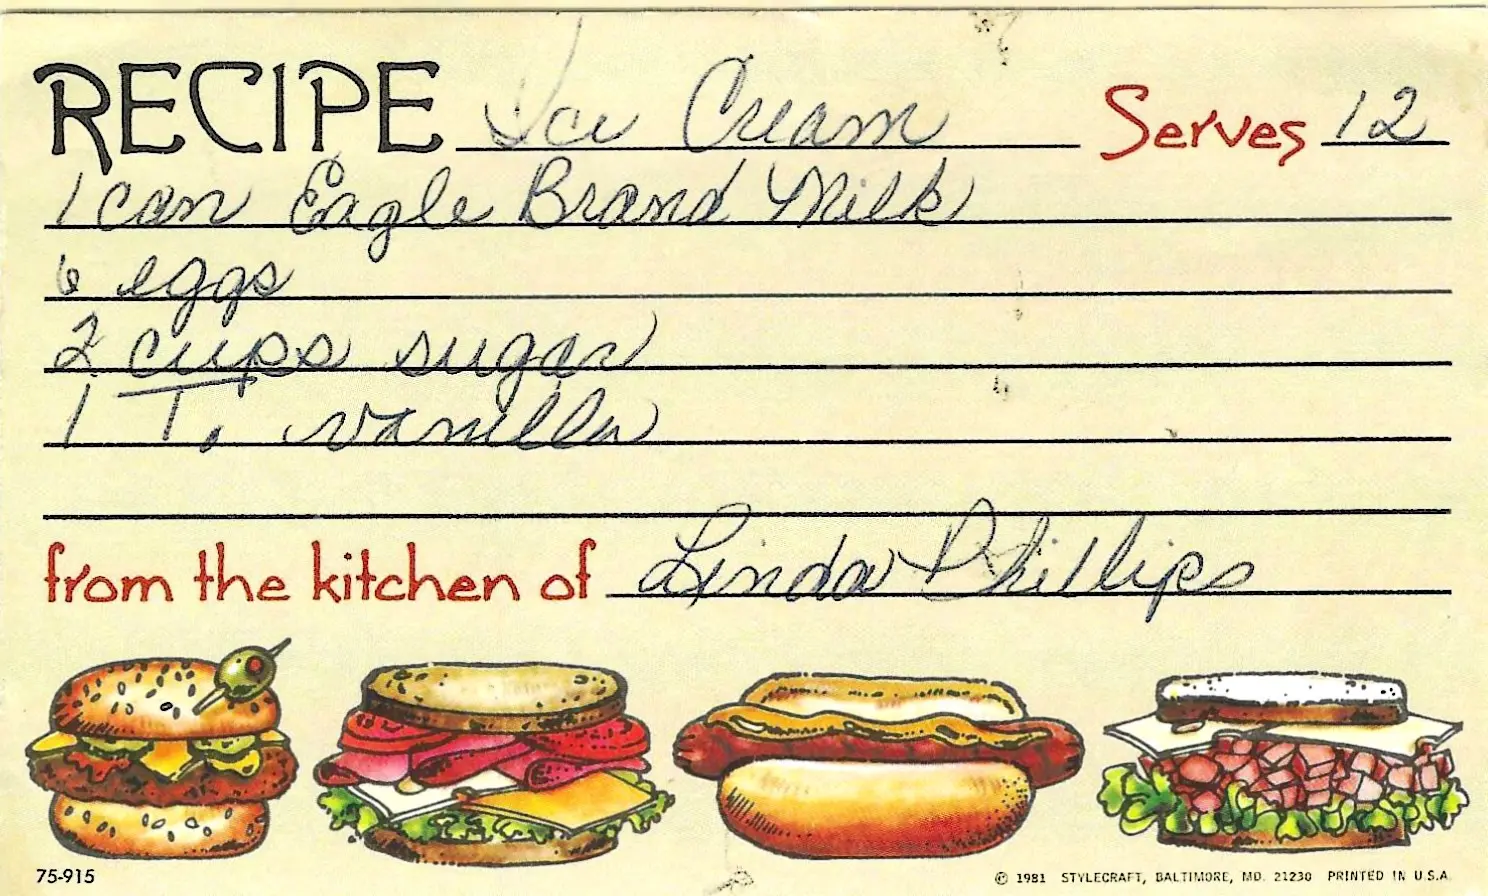 RECIPE Ice Cream Serves 12
1 can Eagle Brand Milk
6 eggs
2 cups sugar
1 T. vanilla
from the kitchen of Linda Phillips
75-915
© 1981 STYLECRAFT, BALTIMORE, MD. 21230 PRINTED IN U.S.A.